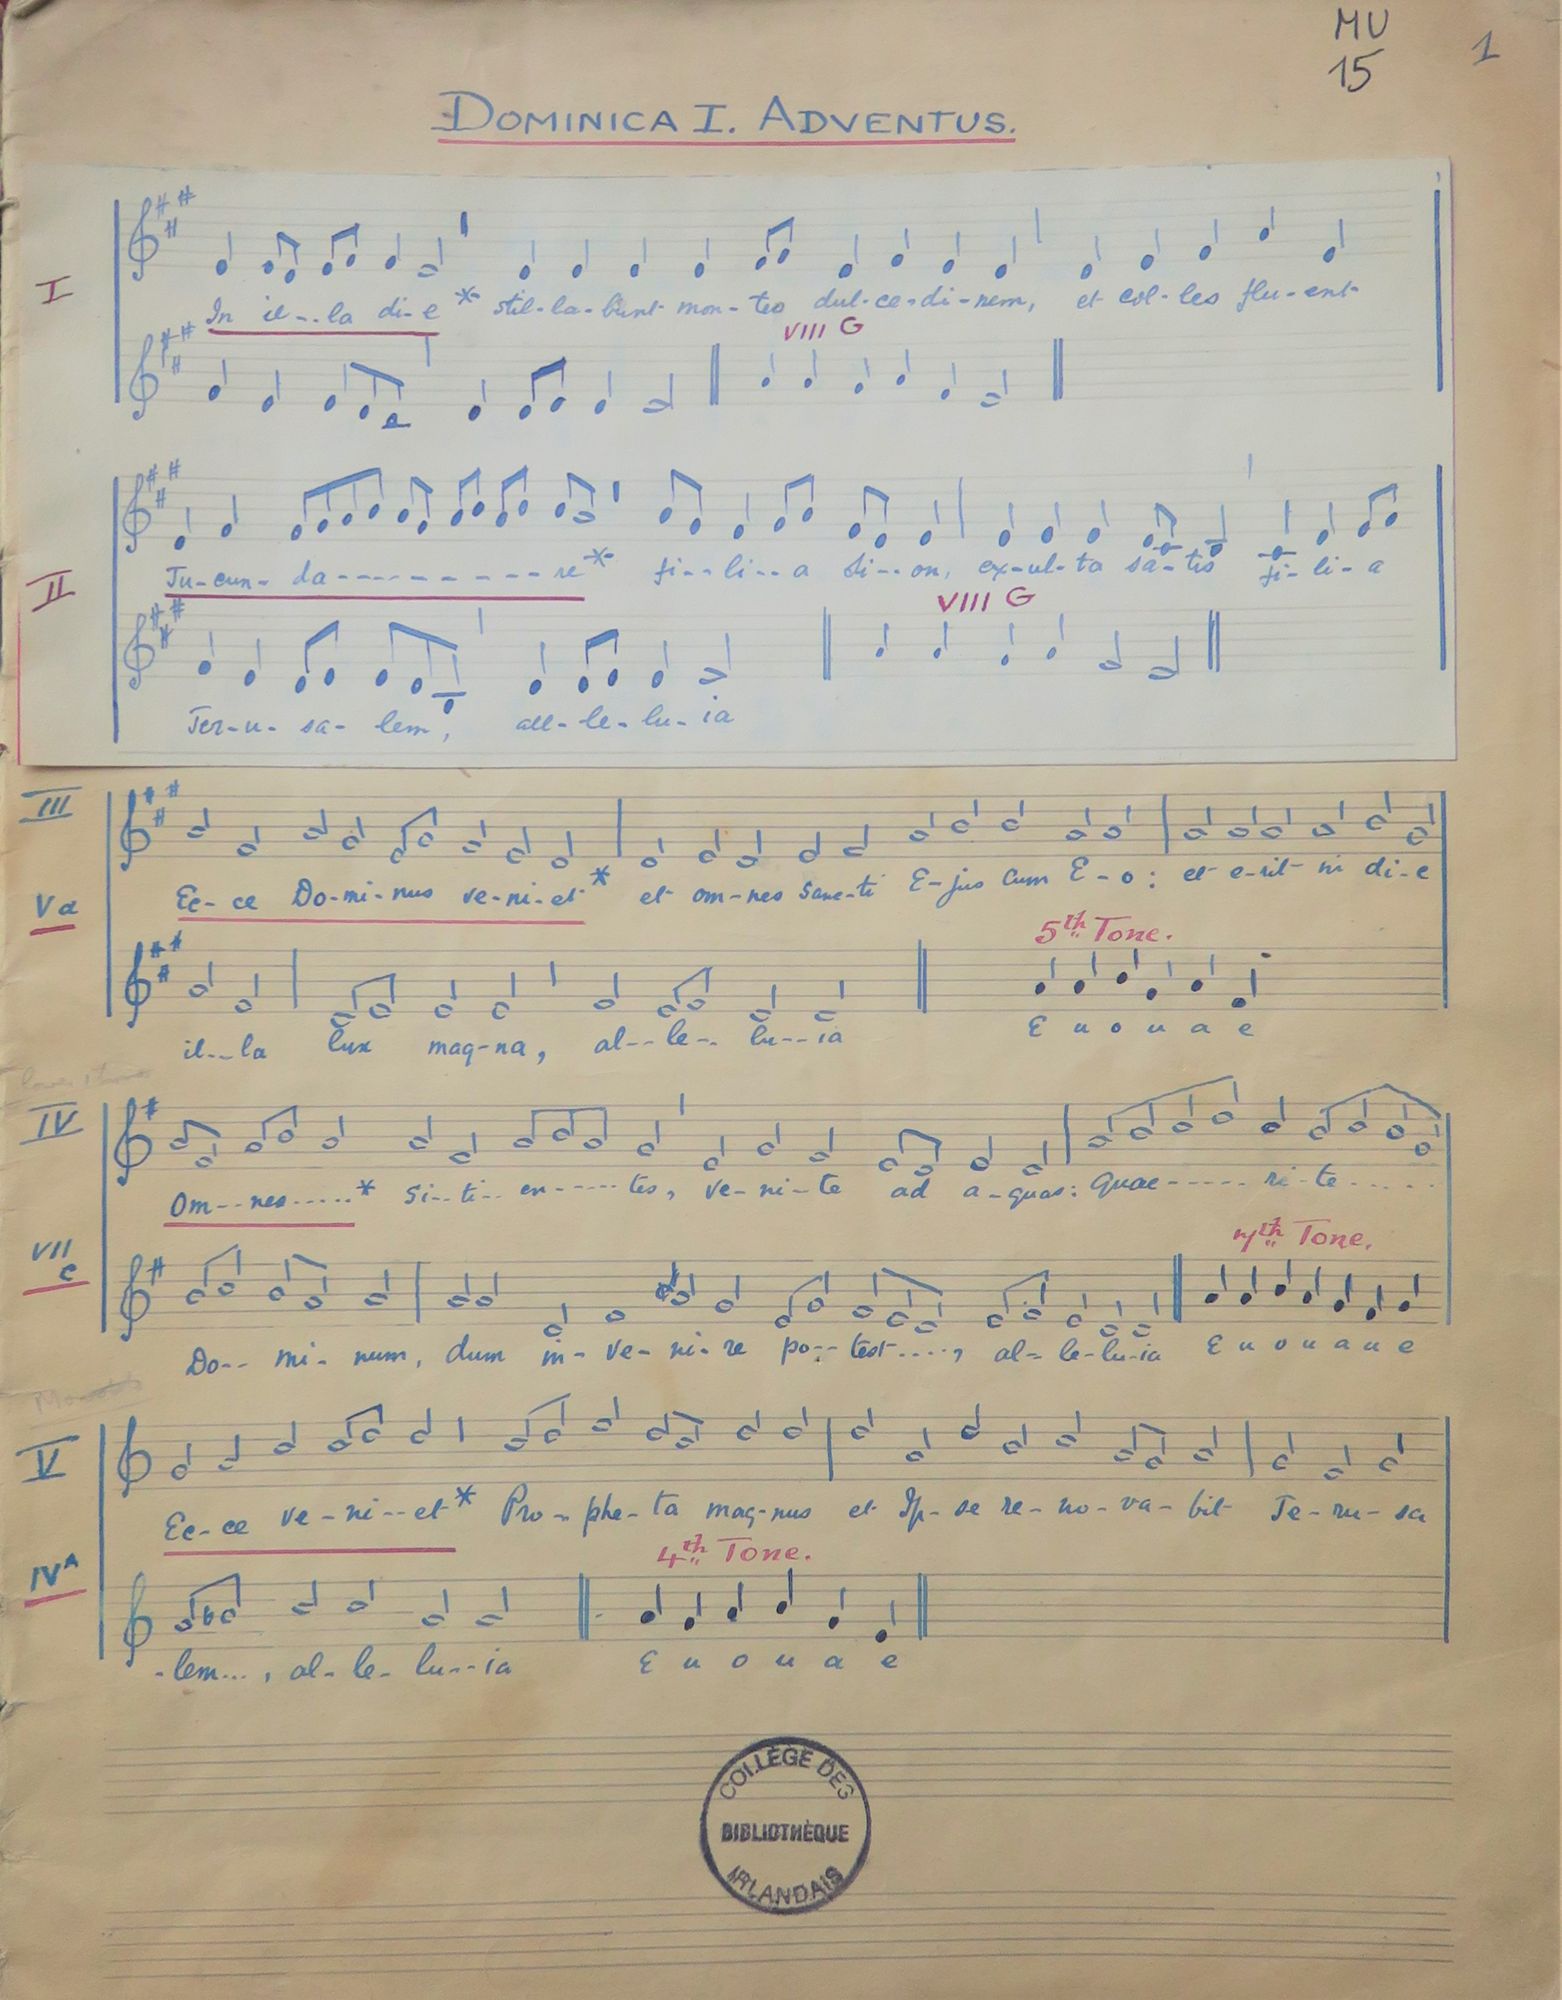 MU
15
1
DOMINICA I. ADVENTUS.
I
In il--la di-e * stil-la-bunt mon-tes dul-ce-di-nem, et col-les flu-ent
VIII G
II
Ju-cun-da----------re * fi--li--a Si--on, ex-ul-ta sa-tis fi-li-a
VIII G
Jer-u-sa-lem, all-le-lu-ia
III
Va
Ec-ce Do-mi-nus ve-ni-et * et om-nes Sanc-ti E-jus cum E-o: et e-rit in di-e
5th Tone.
il--la lux mag-na, al--le--lu--ia E u o u a e
IV
Om--nes..... * Si--ti--en-----tes, ve-ni-te ad a-quas: quae-----ri-te.....
VII c
7th Tone.
Do--mi-num, dum in-ve-ni-re po--test...., al-le-lu-ia E u o u a e
V
Ec-ce ve-ni--et * Pro--phe-ta mag-nus et Ip-se re-no-va-bit Je-ru-sa
IVA
4th Tone.
-lem..., al-le-lu--ia E u o u a e
COLLÈGE DES
BIBLIOTHÈQUE
IRLANDAIS